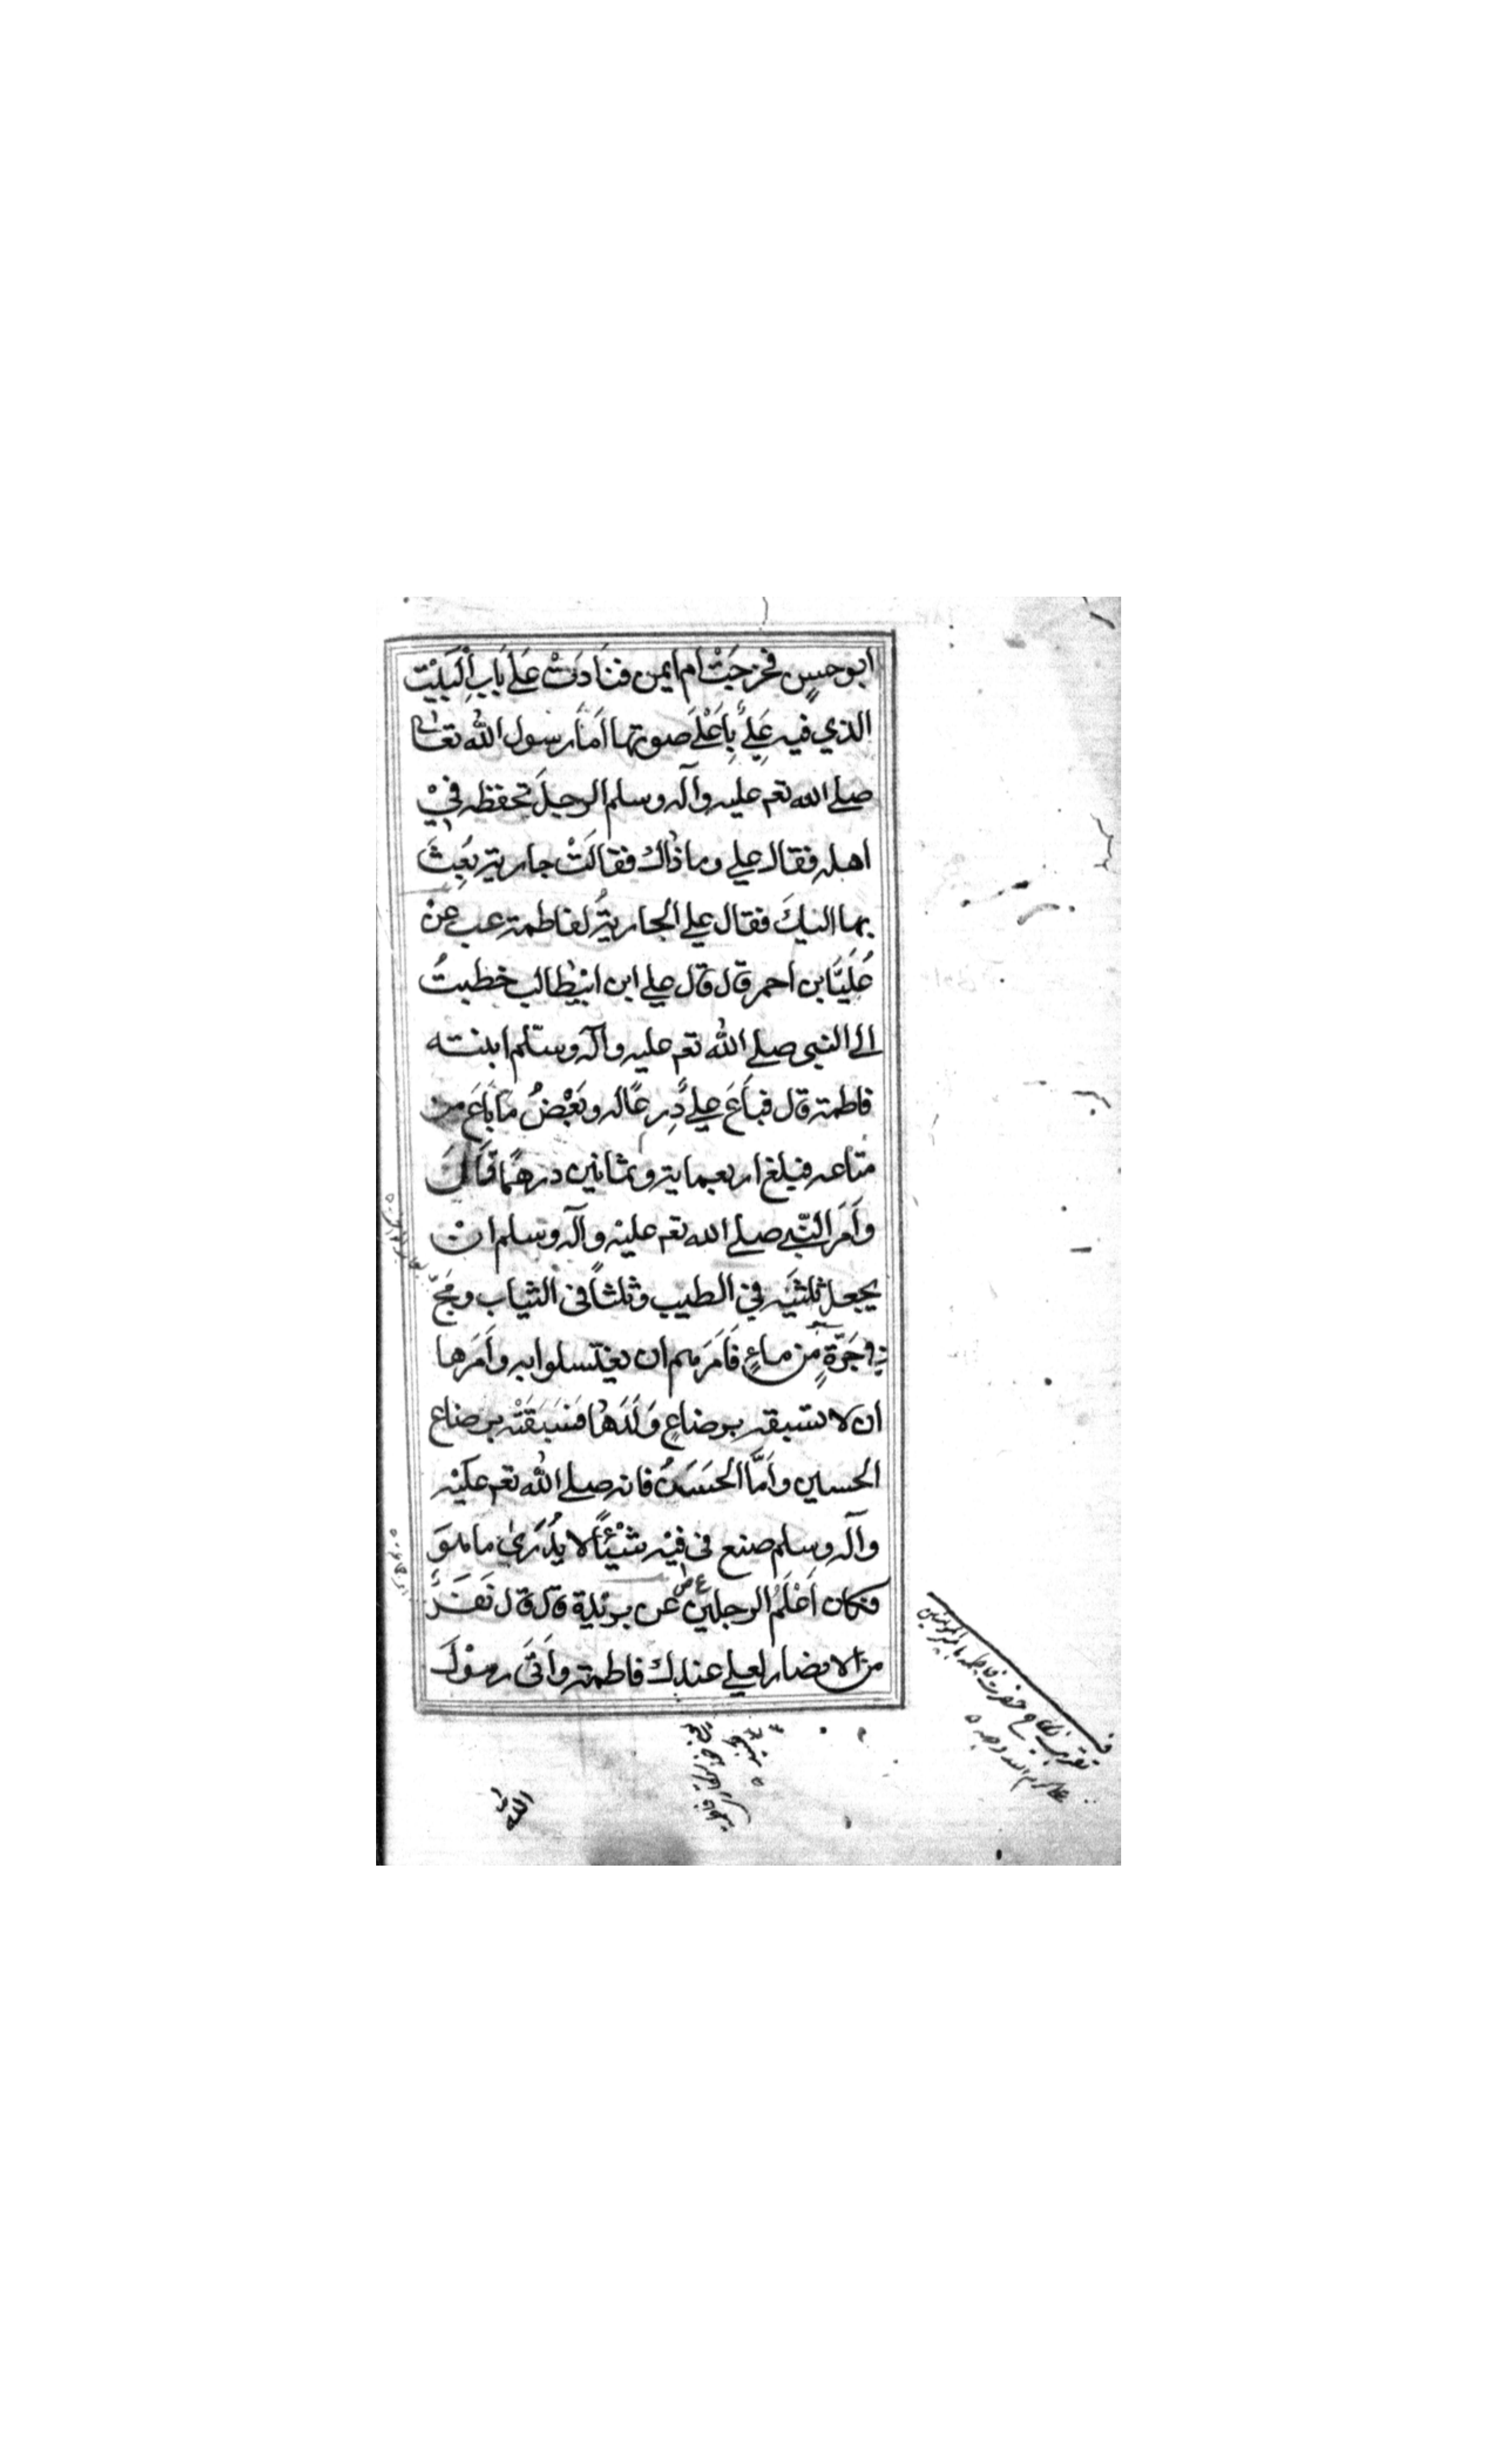 ابو حسن فخرجَتْ ام ايمن فنَادَتْ عَلےٰ بَابِ الْبَيْت
الذي فيہ عَلِیٌّ بِاَعْلَےٰ صوتہا اَمَا رسول اللہ تعالے
صلے اللہ تعم عليہ وآلہ وسلم الرجلَ تحفظہ فِيْ
اهلہ فقال علي وما ذٰاك فقالَتْ جاريۃ بُعِثَ
بہا اليكَ فقال علي الجاريۃُ لفاطمۃ عب عن
عُلَيَّا ابن احمر قال قال علي ابن ابيطالب خطبتُ
الی النبي صلے اللہ تعم عليہ وآلہ وسلم ابنتہ
فاطمۃ قال فبَاعَ عليٌّ دِرعًا لہ وبَعْضُ مَا بَاعَ من
متاعہ فبلغ اربعمايۃ وثمانين درهمًا قَالَ
وَاَمَرَ النَّبي صلے اللہ تعم عليہ وآلہ وسلم ان
يجعل ثلثيَہ في الطيب وثلثاً في الثياب ومَجَّ
في جَرَّةٍ من ماءٍ فَاَمَرَهم ان يغتسلوا بہ واَمَرَها
ان لا تسبقہ برضاعِ وَلَدَهَا فسَبَقَتْہ برضاع
الحسين واَمَّا الحَسَنُ فانہ صلے اللہ تعم عليہ
وآلہ وسلم صنع في فيْہ شَيْئًا لا يُدْرَىٰ ما هُوَ
فكان اَعْلَمُ الرجلين ع ض عن بريْدۃ قال قال نَفَرٌ
من الانصار لعلي عندك فاطمۃ واَتَىٰ رسُوْلَ
اللہ
تقريب نكاح حضرت فاطمہ با اميرالمومنين
علي كرم اللہ وجہہ